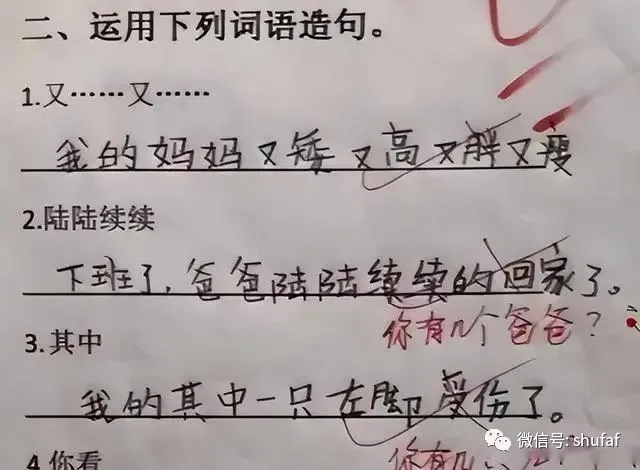 二、运用下列词语造句。
1.又……又……
我的妈妈又矮又高又胖又瘦
2.陆陆续续
下班了,爸爸陆陆续续的回家了。
你有几个爸爸?
3.其中
我的其中一只左脚受伤了。
微信号: shufaf
4.你看
你有几